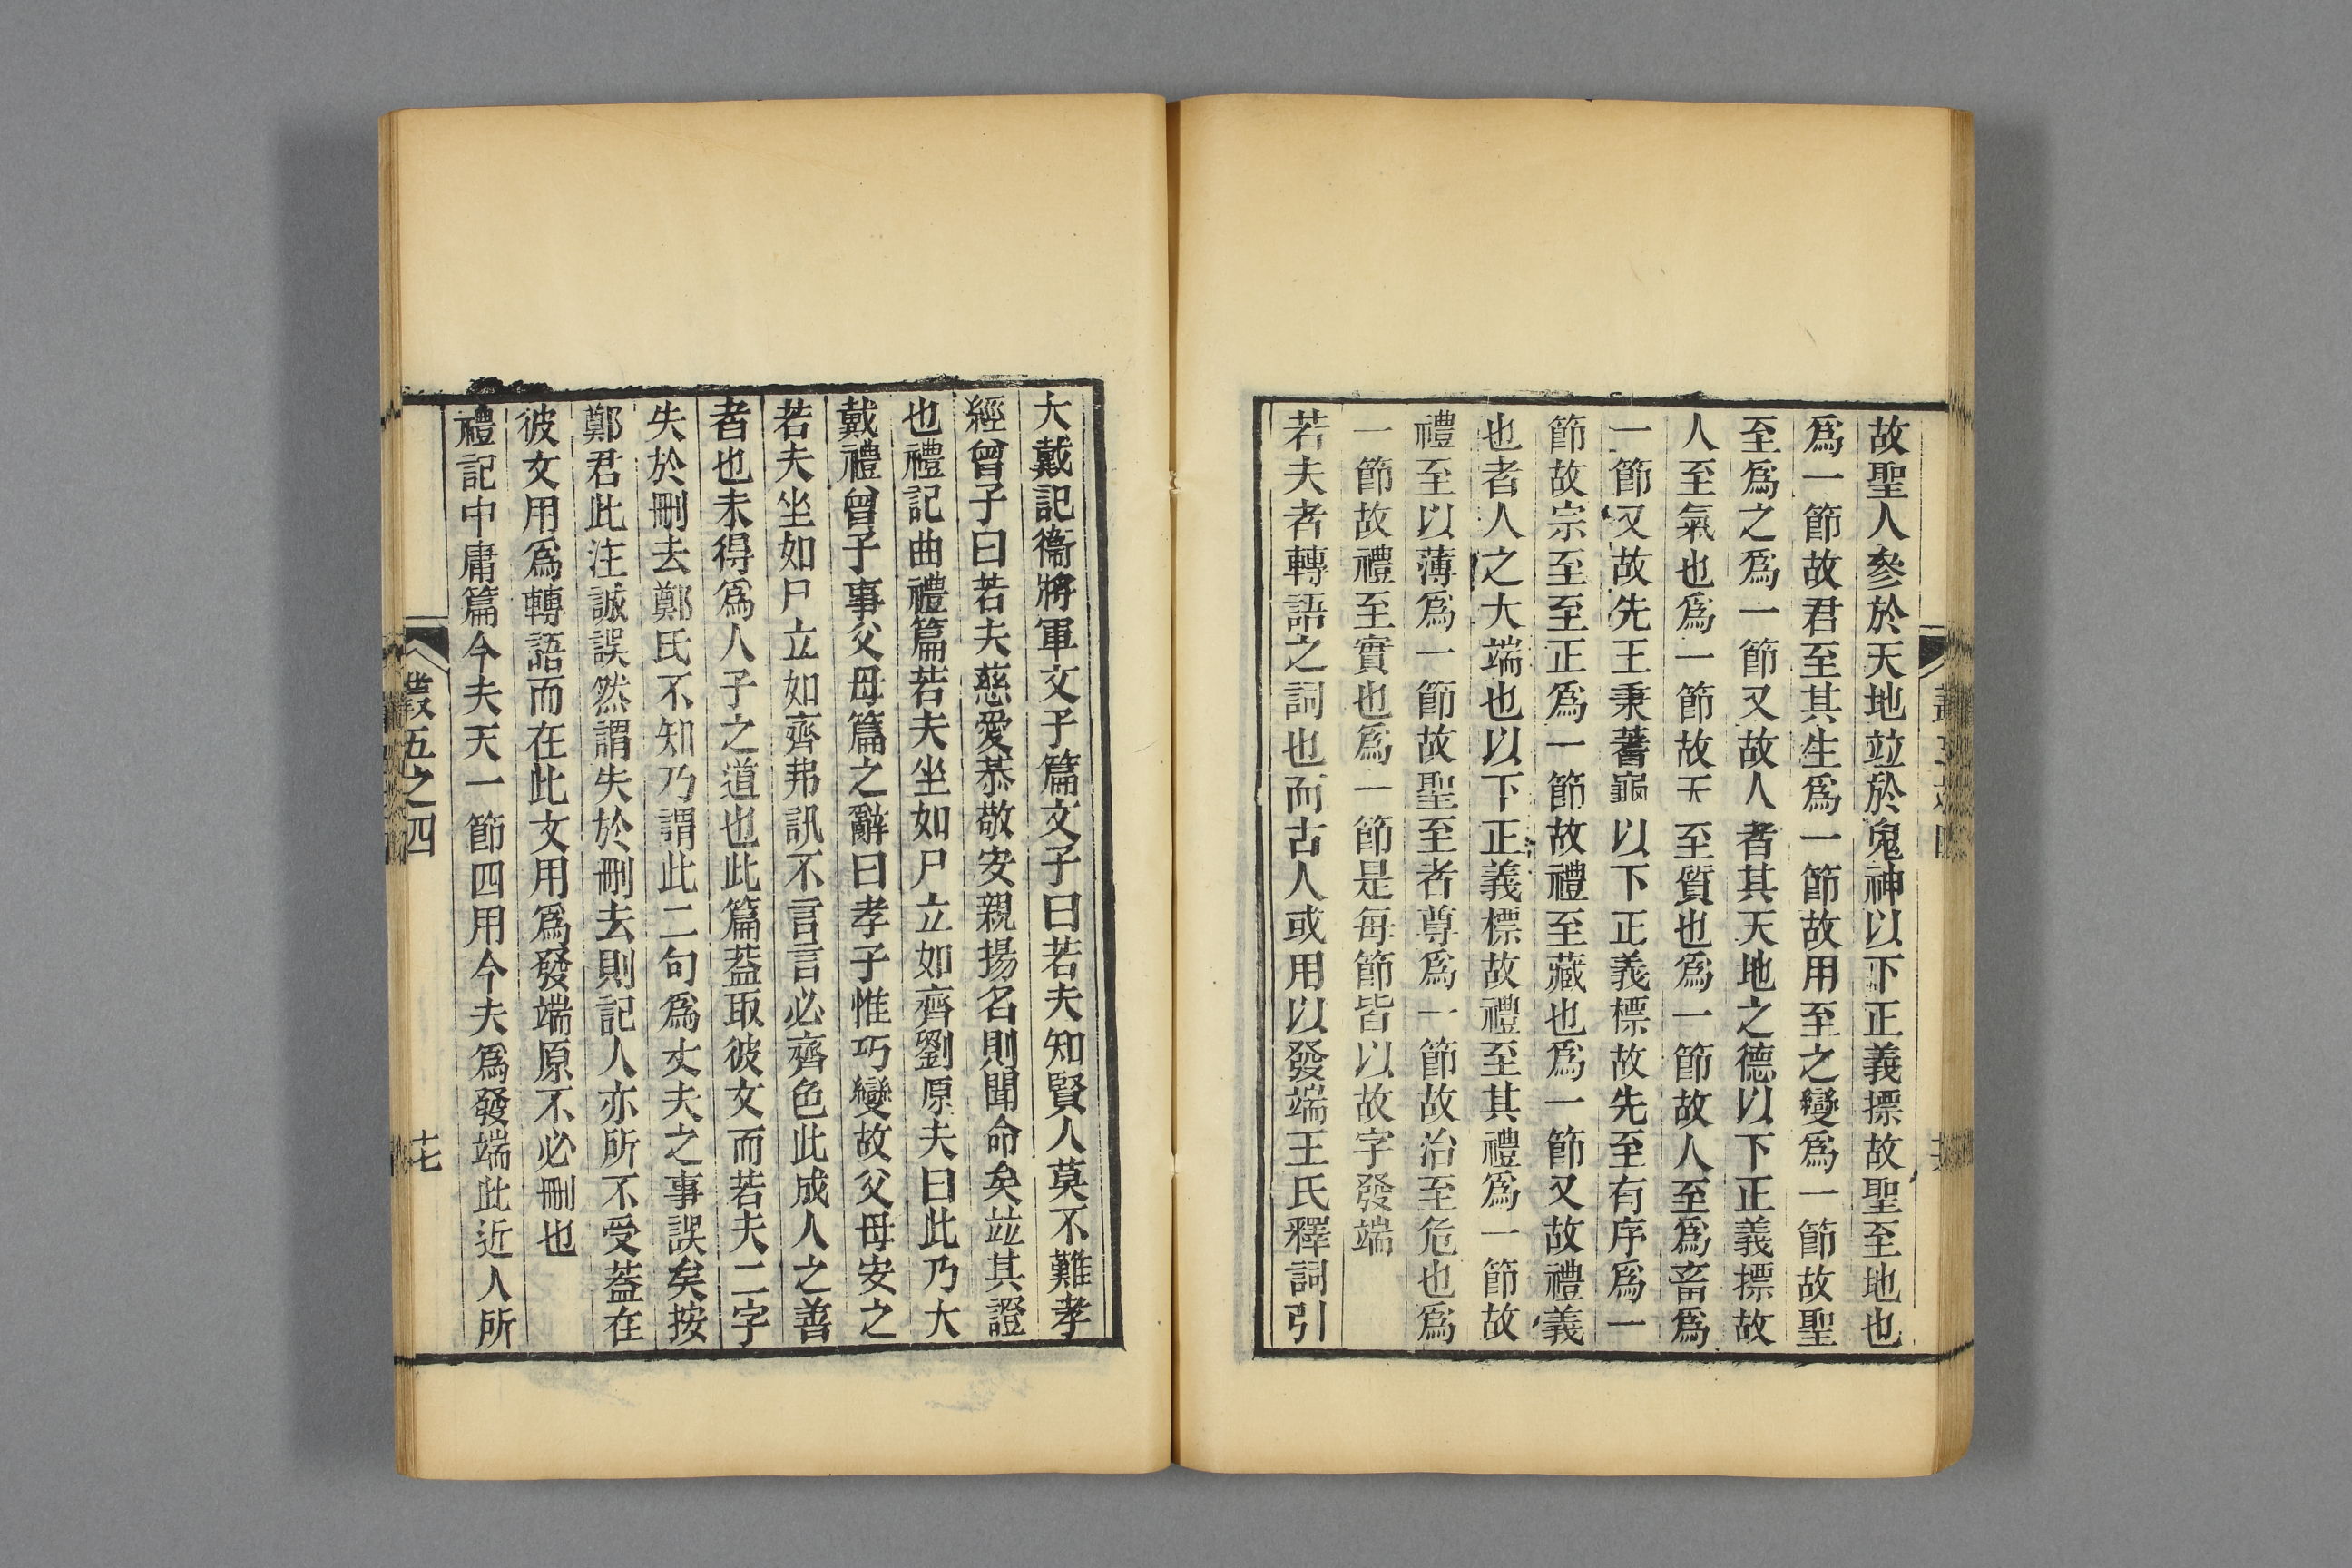 故聖人參於天地竝於鬼神以下正義摽故聖至地也
爲一節故君至其生爲一節故用至之變爲一節故聖
至爲之爲一節又故人者其天地之德以下正義摽故
人至氣也爲一節故天至質也爲一節故人至爲畜爲
一節又故先王秉蓍龜以下正義標故先至有序爲一
節故宗至至正爲一節故禮至藏也爲一節又故禮義
也者人之大端也以下正義標故禮至其禮爲一節故
禮至以薄爲一節故聖至者尊爲一節故治至危也爲
一節故禮至實也爲一節是每節皆以故字發端
若夫者轉語之詞也而古人或用以發端王氏釋詞引
大戴記衞將軍文子篇文子曰若夫知賢人莫不難孝
經曾子曰若夫慈愛恭敬安親揚名則聞命矣竝其證
也禮記曲禮篇若夫坐如尸立如齊劉原夫曰此乃大
戴禮曾子事父母篇之辭曰孝子惟巧變故父母安之
若夫坐如尸立如齊弗訊不言言必齊色此成人之善
者也未得爲人子之道也此篇葢取彼文而若夫二字
失於刪去鄭氏不知乃謂此二句爲丈夫之事誤矣按
鄭君此注誠誤然謂失於刪去則記人亦所不受葢在
彼文用爲轉語而在此文用爲發端原不必刪也
禮記中庸篇今夫天一節四用今夫爲發端此近人所
叢五之四
十七